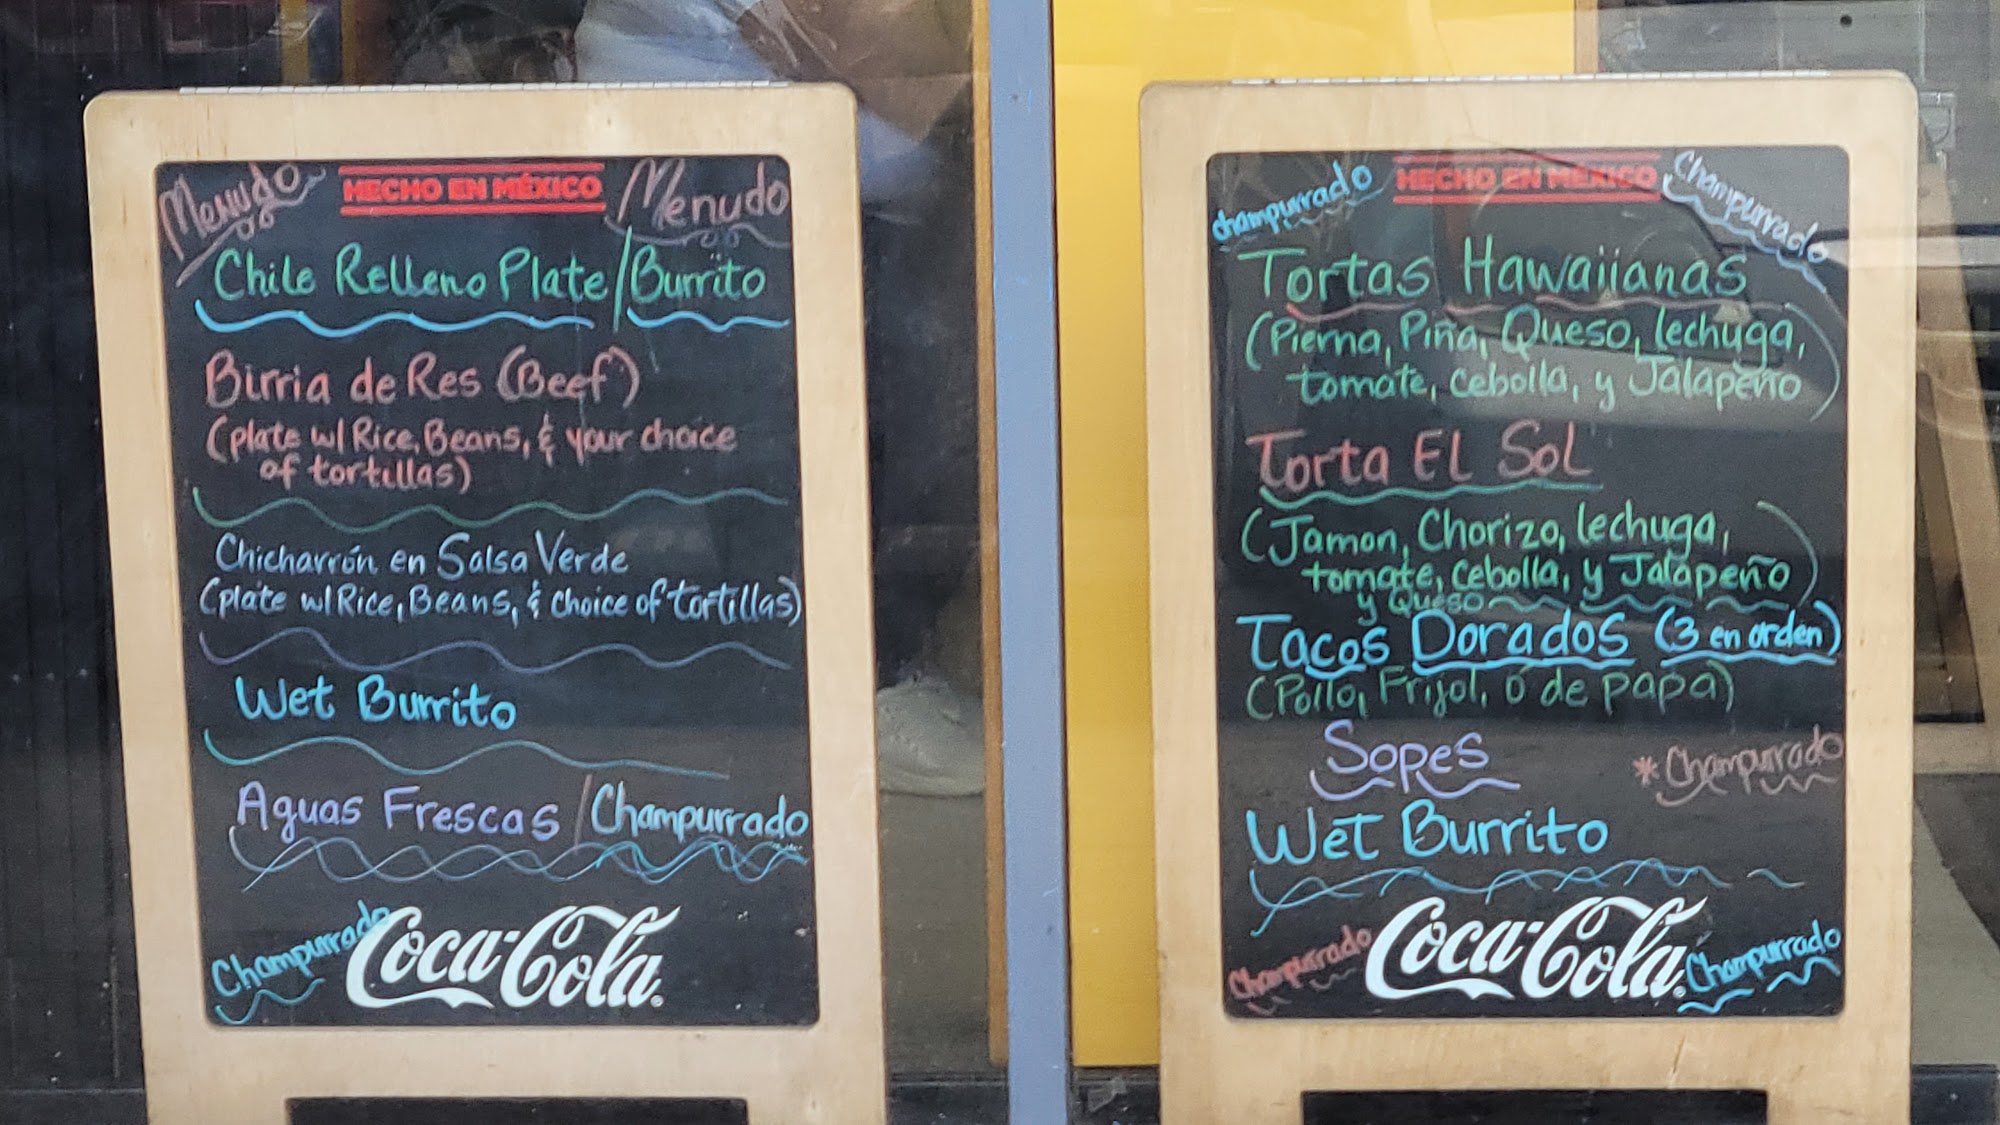 Menudo HECHO EN MÉXICO Menudo
Chile Relleno Plate/Burrito
Birria de Res (Beef)
(plate w/ Rice, Beans, & your choice
of tortillas)
Chicharrón en Salsa Verde
(plate w/ Rice, Beans, & choice of tortillas)
Wet Burrito
Aguas Frescas/Champurrado
Champurrado
Coca-Cola®
champurrado HECHO EN MÉXICO Champurrado
Tortas Hawaiianas
(Pierna, Piña, Queso, lechuga,
tomate, cebolla, y Jalapeño)
Torta El Sol
(Jamon, Chorizo, lechuga,
tomate, cebolla, y Jalapeño)
y Queso
Tacos Dorados (3 en orden)
(Pollo, Frijol, ó de papa)
Sopes
*Champurrado
Wet Burrito
Champurrado Coca-Cola® Champurrado